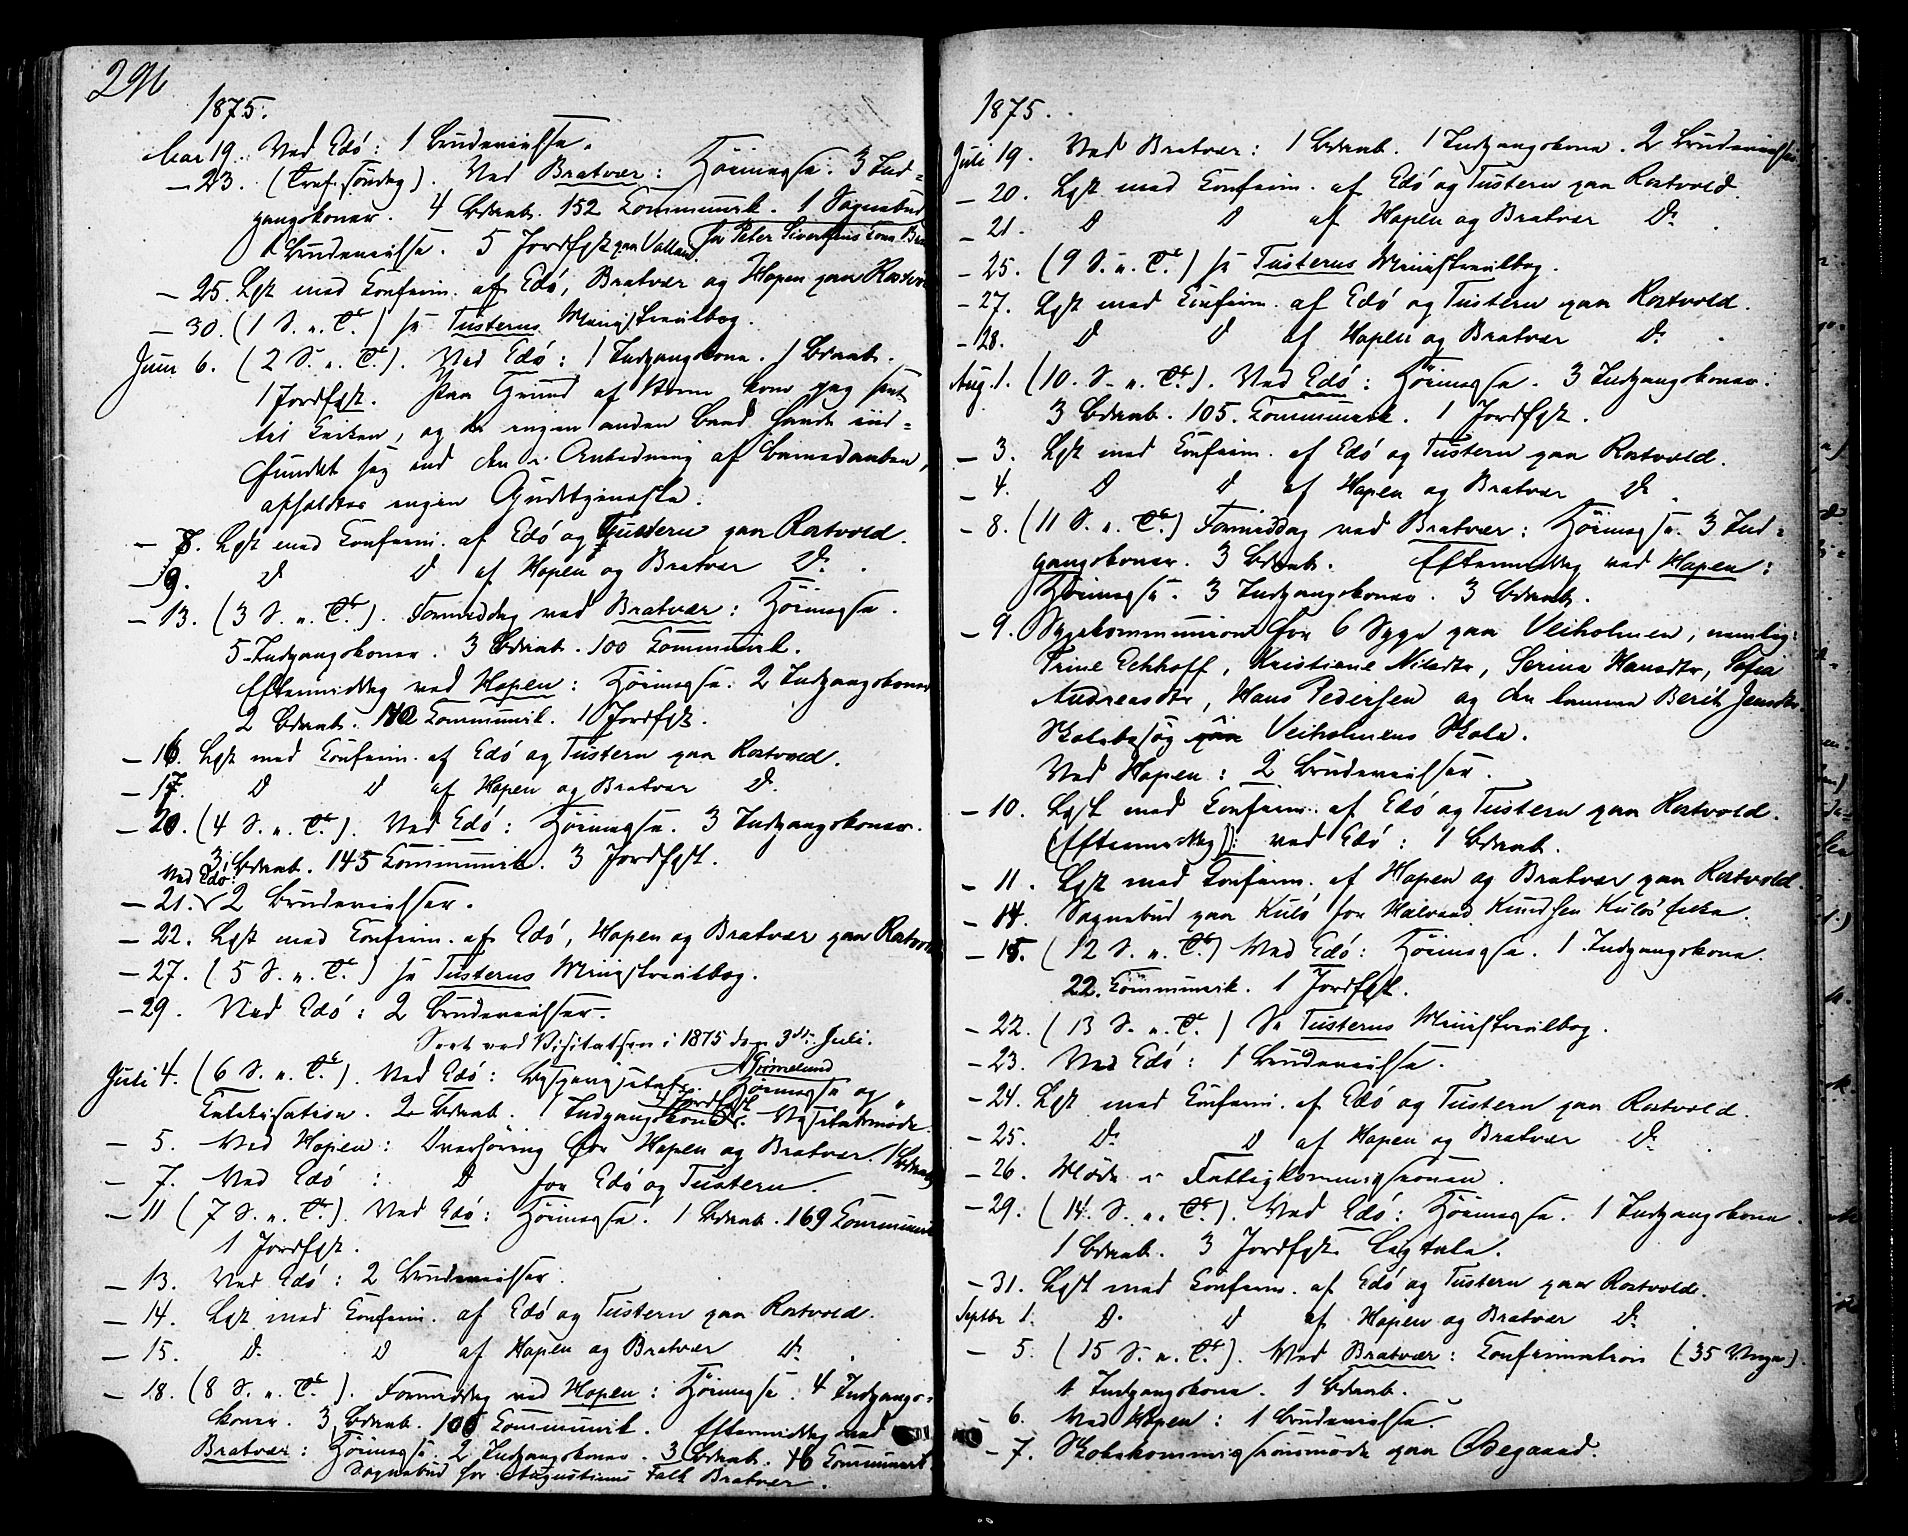 296
1875.
Mai 19. Ved Edö: 1 Brudevielse.
— 23. (Tref. söndag). Ved Bratvær: Höimesse. 3 Ind=
gangskoner. 4 Bdaab. 152 Communik. 1 Sognebud
1 Brudevielse. 5 Jordfæst. paa Valland. for Peter Sivertsens Kone
— 25. Læst med Confirm. af Edö, Bratvær og Hopen paa Rostvold
— 30. (1 S. e. Tr.) se Tusterns Ministerialbog.
Juni 6. (2 S. e. Tr.). Ved Edö: 1 Indgangskone. 1 Bdaab.
1 Jordfæst. Paa Grund af Storm kom jeg sent
til Kirken, og da ingen anden Baad havde ind=
fundet sig end den i Anledning af Barnedaaben,
afholdtes ingen Gudstjeneste.
— 8. Læst med Confirm. af Edö og Tustern paa Rostvold.
— 9. D D af Hopen og Bratvær D.
— 13. (3 S. e. Tr.). Formiddag ved Bratvær: Höimesse.
5 Indgangskoner. 3 Bdaab. 100 Communik.
Eftermiddag ved Hopen: Höimesse. 2 Indgangskoner
2 Bdaab. Communik. 1 Jordfæst.
— 16. Læst med Confirm. af Edö og Tustern paa Rostvold.
— 17. D D af Hopen og Bratvær D.
— 20. (4 S. e. Tr.). Ved Edö: Höimesse. 3 Indgangskoner.
3 Bdaab. 145 Communik. 3 Jordfæst.
Ved Edö:
— 21. 2 Brudevielser.
— 22. Læst med Confirm. af Edö, Hopen og Bratvær paa Rostvold
— 27. (5 S. e. Tr.) se Tusterns Ministerialbog.
— 29. Ved Edö: 2 Brudevielser.
Seet ved Visitatsen i 1875 den 3die Juli.
Grimelund
Juli 4. (6 S. e. Tr.). Ved Edö: Bispevisitats. Höimesse og
Catechisation. 2 Bdaab. 1 Indgangskone. 4 Jordfæst. Visitatsmöde.
— 5. Ved Hopen: Overhöring for Hopen og Bratvær. 1 Bdaab
— 7. Ved Edö: D for Edö og Tustern.
— 11 (7 S. e. Tr.). Ved Edö: Höimesse. 1 Bdaab. 169 Communik
1 Jordfæst.
— 13. Ved Edö: 2 Brudevielser.
— 14. Læst med Confirm. af Edö og Tustern paa Rostvold.
— 15. D. D af Hopen og Bratvær D.
— 18. (8 S. e. Tr.). Formiddag ved Hopen: Höimesse. 4 Indgangs=
koner. 3 Bdaab. 106 Communik. Eftermiddag ved
Bratvær: Höimesse. 2 Indgangskoner. 3 Bdaab. 46 Communik.
Sognebud for Augustinus Falk Bratvær.
1875.
Juli 19. Ved Bratvær: 1 Bdaab. 1 Indgangskone. 2 Brudevielser
— 20. Læst med Confirm. af Edö og Tustern paa Rostvold.
— 21. D D af Hopen og Bratvær D.
— 25. (9 S. e. Tr.) se Tusterns Ministerialbog.
— 27. Læst med Confirm. af Edö og Tustern paa Rostvold.
— 28. D D af Hopen og Bratvær D.
Aug. 1. (10. S. e. Tr.). Ved Edö: Höimesse. 3 Indgangskoner.
3 Bdaab. 105. Communik. 1 Jordfæst.
— 3. Læst med Confirm. af Edö og Tustern paa Rostvold.
— 4. D D af Hopen og Bratvær D.
— 8. (11 S. e. Tr.) Formiddag ved Bratvær: Höimesse. 3 Ind=
gangskoner. 3 Bdaab. Eftermiddag ved Hopen:
Höimesse. 3 Indgangskoner. 3 Bdaab.
— 9. Sygekommunion for 6 Syge paa Veiholmen, nemlig:
Trine Eckhoff, Kristiane Nilsdtr, Serina Hansdtr, Sofia
Andreasdtr, Hans Pedersen og den lamme Berit Jensdtr
Skolebesög paa Veiholmens Skole.
Ved Hopen: 2 Brudevielser.
— 10. Læst med Confirm. af Edö og Tustern paa Rostvold.
(Eftermiddag): ved Edö: 1 Bdaab.
— 11. Læst med Confirm. af Hopen og Bratvær paa Rostvold.
— 14. Sognebud paa Kulö for Halvard Knudsen Kulö
— 15. (12 S. e. Tr.) Ved Edö: Höimesse. 1 Indgangskone.
22. Communik. 1 Jordfæst.
— 22. (13 S. e. Tr.) Se Tusterns Ministerialbog.
— 23. Ved Edö: 1 Brudevielse.
— 24. Læst med Confirm. af Edö og Tustern paa Rostvold.
— 25. D. D af Hopen og Bratvær D.
— 26. Möde i Fattigkommissionen.
— 29. (14. S. e. Tr.). Ved Edö: Höimesse. 1 Indgangskone.
1 Bdaab. 3 Jordfæst. Ligtale.
— 31. Læst med Confirm. af Edö og Tustern paa Rostvold.
Septbr 1. D. D af Hopen og Bratvær D.
— 5. (15 S. e. Tr.). Ved Bratvær: Confirmation (35 Unge).
1 Indgangskone. 1 Bdaab.
— 6. Ved Hopen: 1 Brudevielse.
— 7. Skolekommissionsmöde paa Ödegaard.